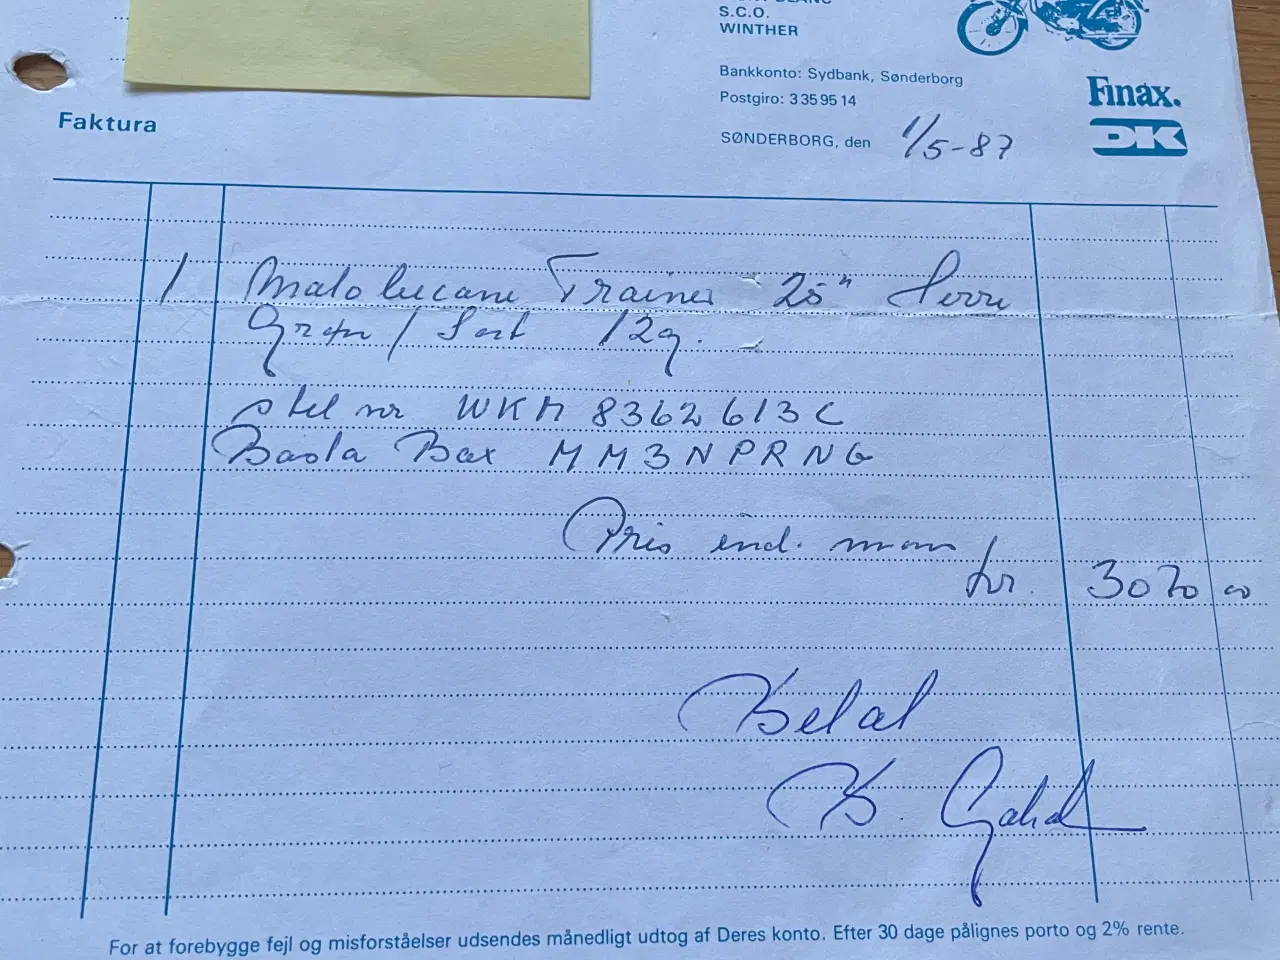 S.C.O.
WINTHER
Bankkonto: Sydbank, Sønderborg
Postgiro: 3 35 95 14
Finax.
DK
Faktura
SØNDERBORG, den 1/5-87
1 Trainer 25" Herre
/ Sort 12g.
Stel nr WKM 8362613C
Basta Box MM3NPRNG
Pris incl. moms
kr. 3070 00
Betalt
K.
For at forebygge fejl og misforståelser udsendes månedligt udtog af Deres konto. Efter 30 dage pålignes porto og 2% rente.